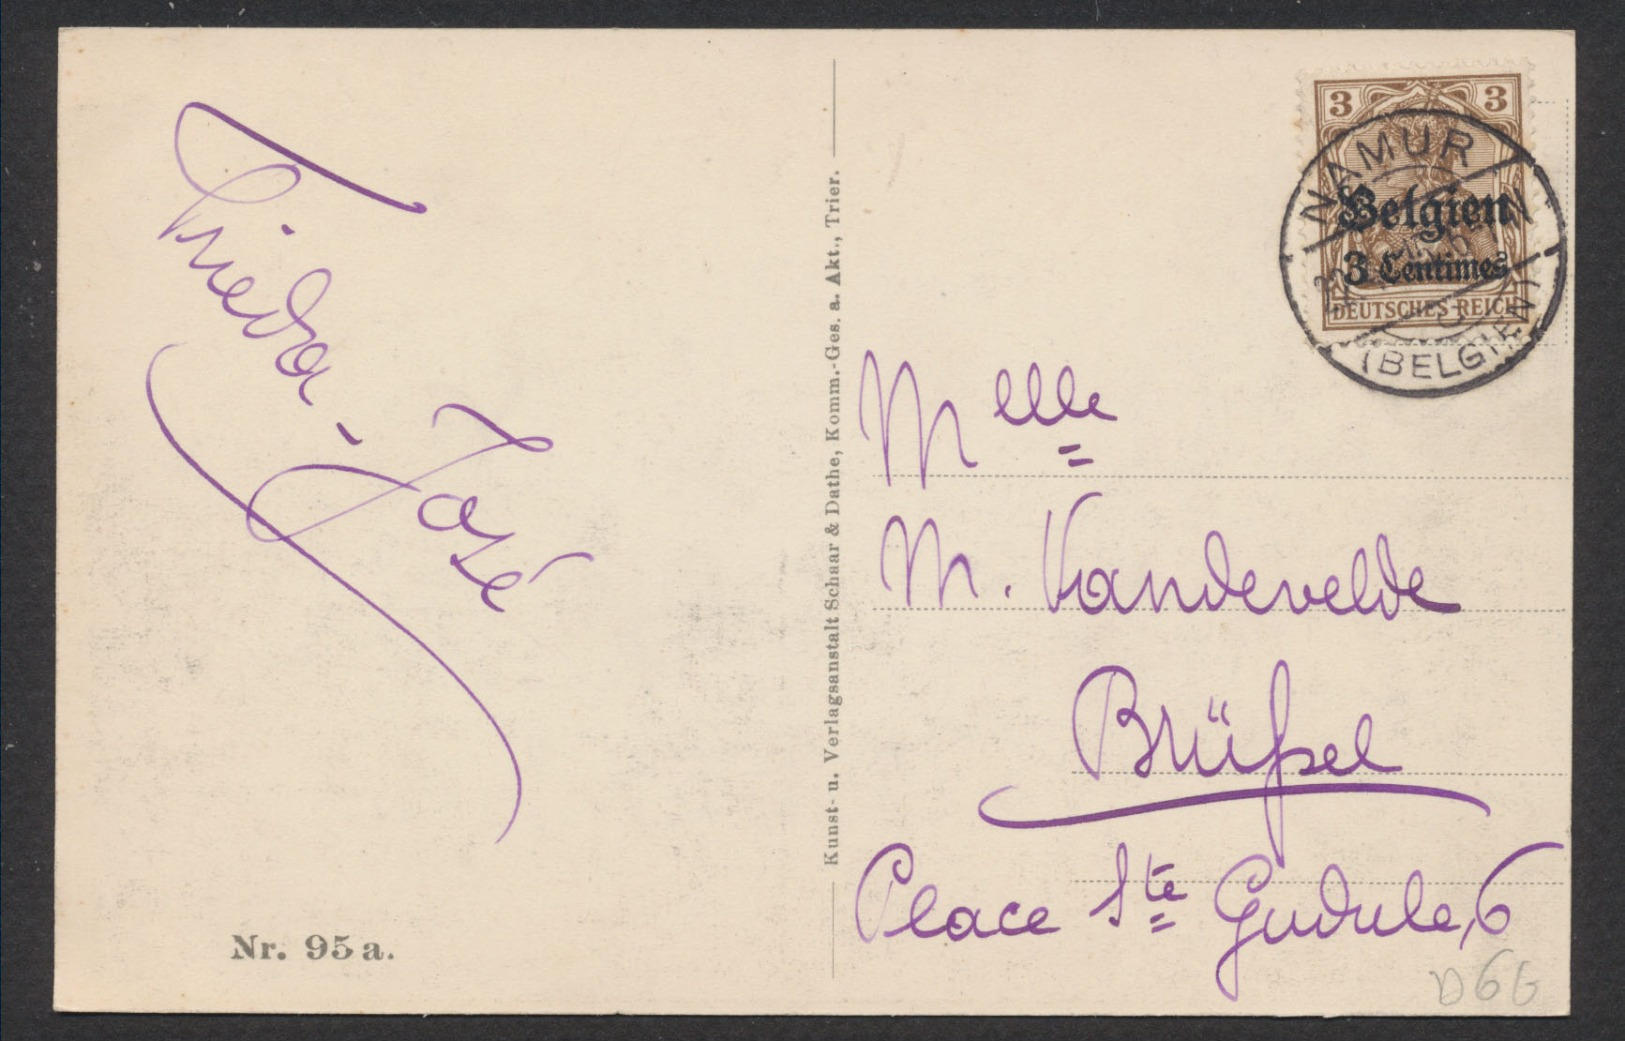 Frieda - José
Nr. 95 a.
Kunst- u. Verlagsanstalt Schaar & Dathe, Komm.-Ges. a. Akt., Trier.
3 3
Belgien
3 Centimes
DEUTSCHES REICH
NAMUR
(BELGIEN)
Mlle
M. Vandevelde
Brüßel
Place Ste Gudule, 6
D6G